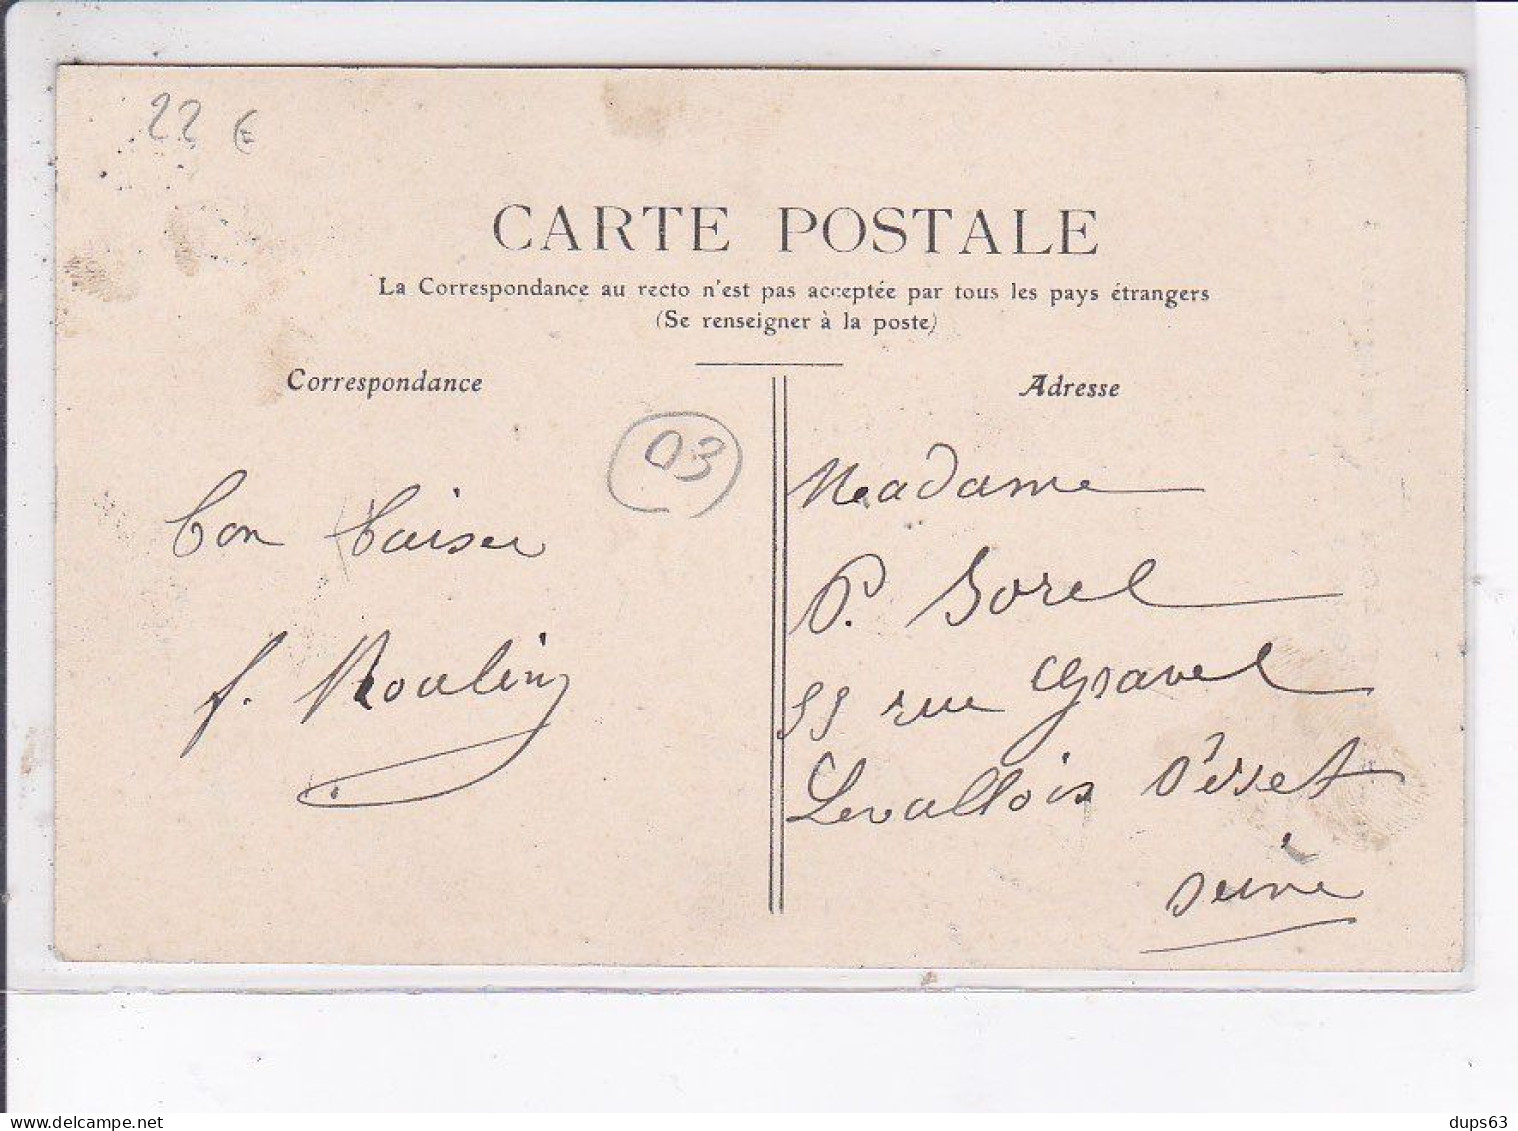 22 €
CARTE POSTALE
La Correspondance au recto n'est pas acceptée par tous les pays étrangers
(Se renseigner à la poste)
Correspondance
Adresse
03
Bon Baiser
f. Moulin
Madame
P. Sorel
55 rue Gravel
Levallois Perret
Seine
www.delcampe.net
dups63